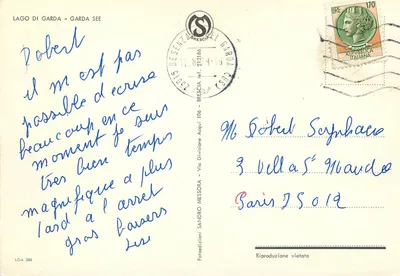 LAGO DI GARDA - GARDA SEE
Robert
il m est pas
possible d ecrire
beaucoup en ce
moment je suis
tres bien temps
magnifique a plus
tard a l arret
gros baisers
LIRE 170
ITALIANA
Fotoedizioni SANDRO MESSORA - Via Divisione Acqui 106 - BRESCIA
Mr Robert
3 Villa St Mandé
Paris 75012
Riproduzione vietata